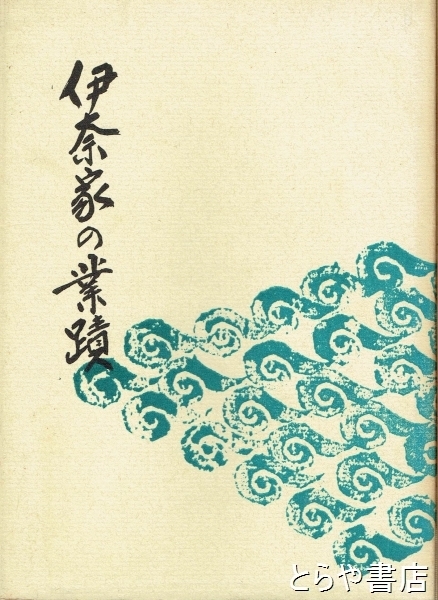 伊奈家の業蹟
©とらや書店